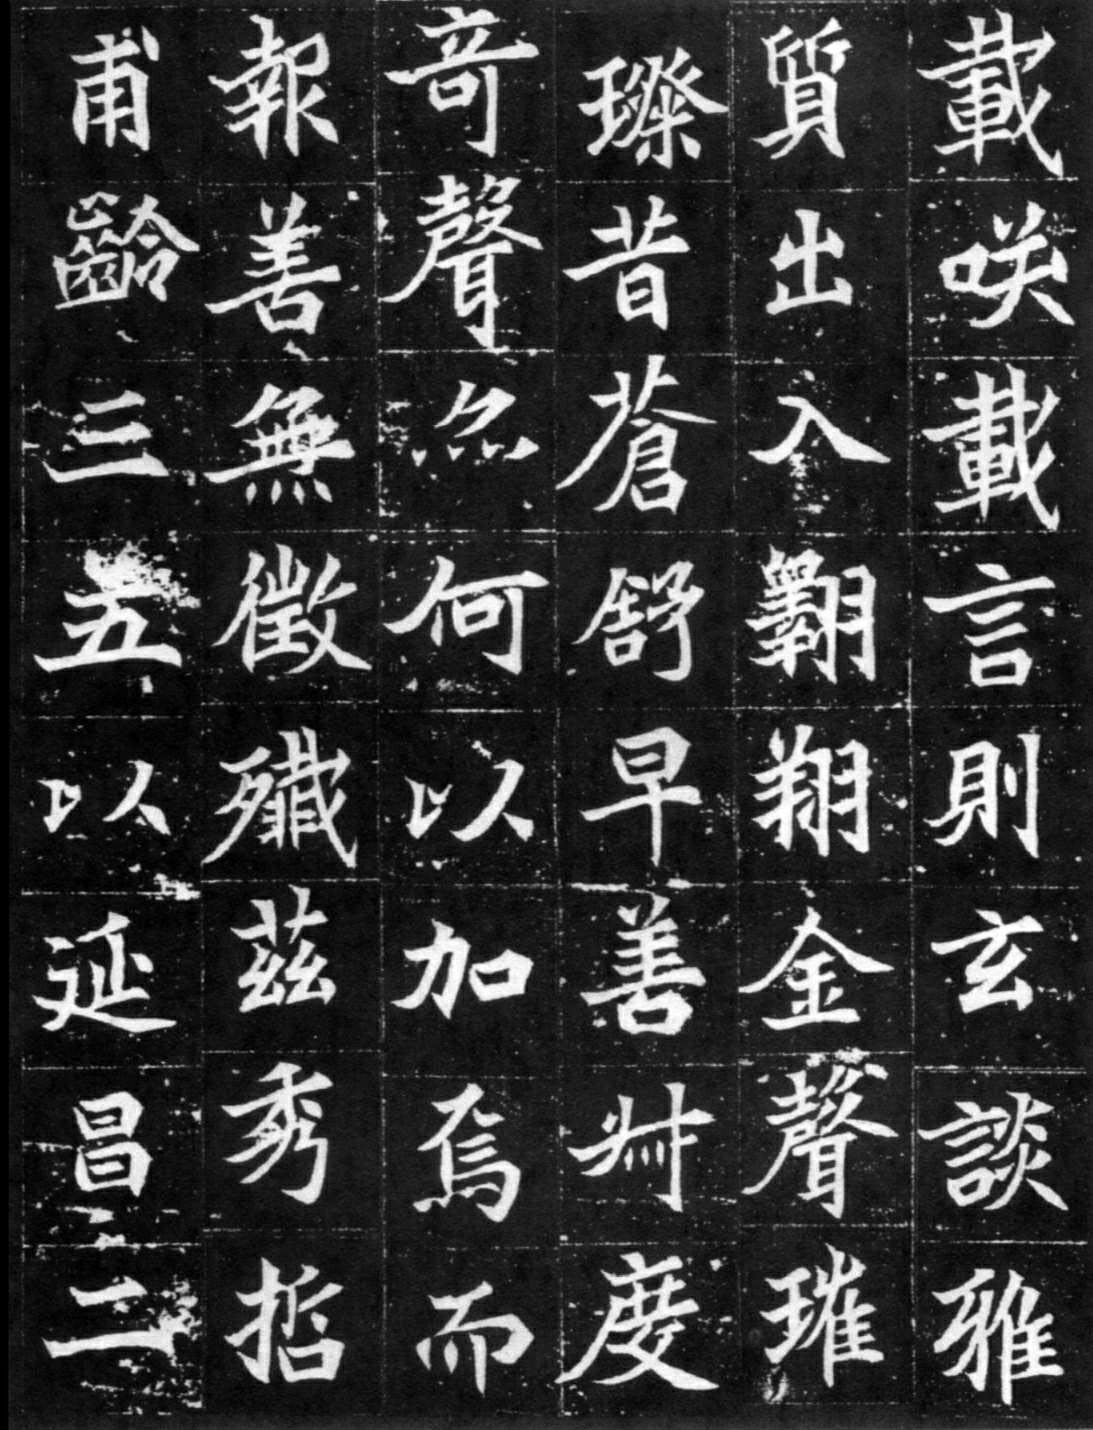 載咲載言則玄談雅
質出入翺翔金聲璀
璨昔蒼舒早善叔度
竒聲亦何以加焉而
報善無徵殲茲秀哲
甫齡三五以延昌二